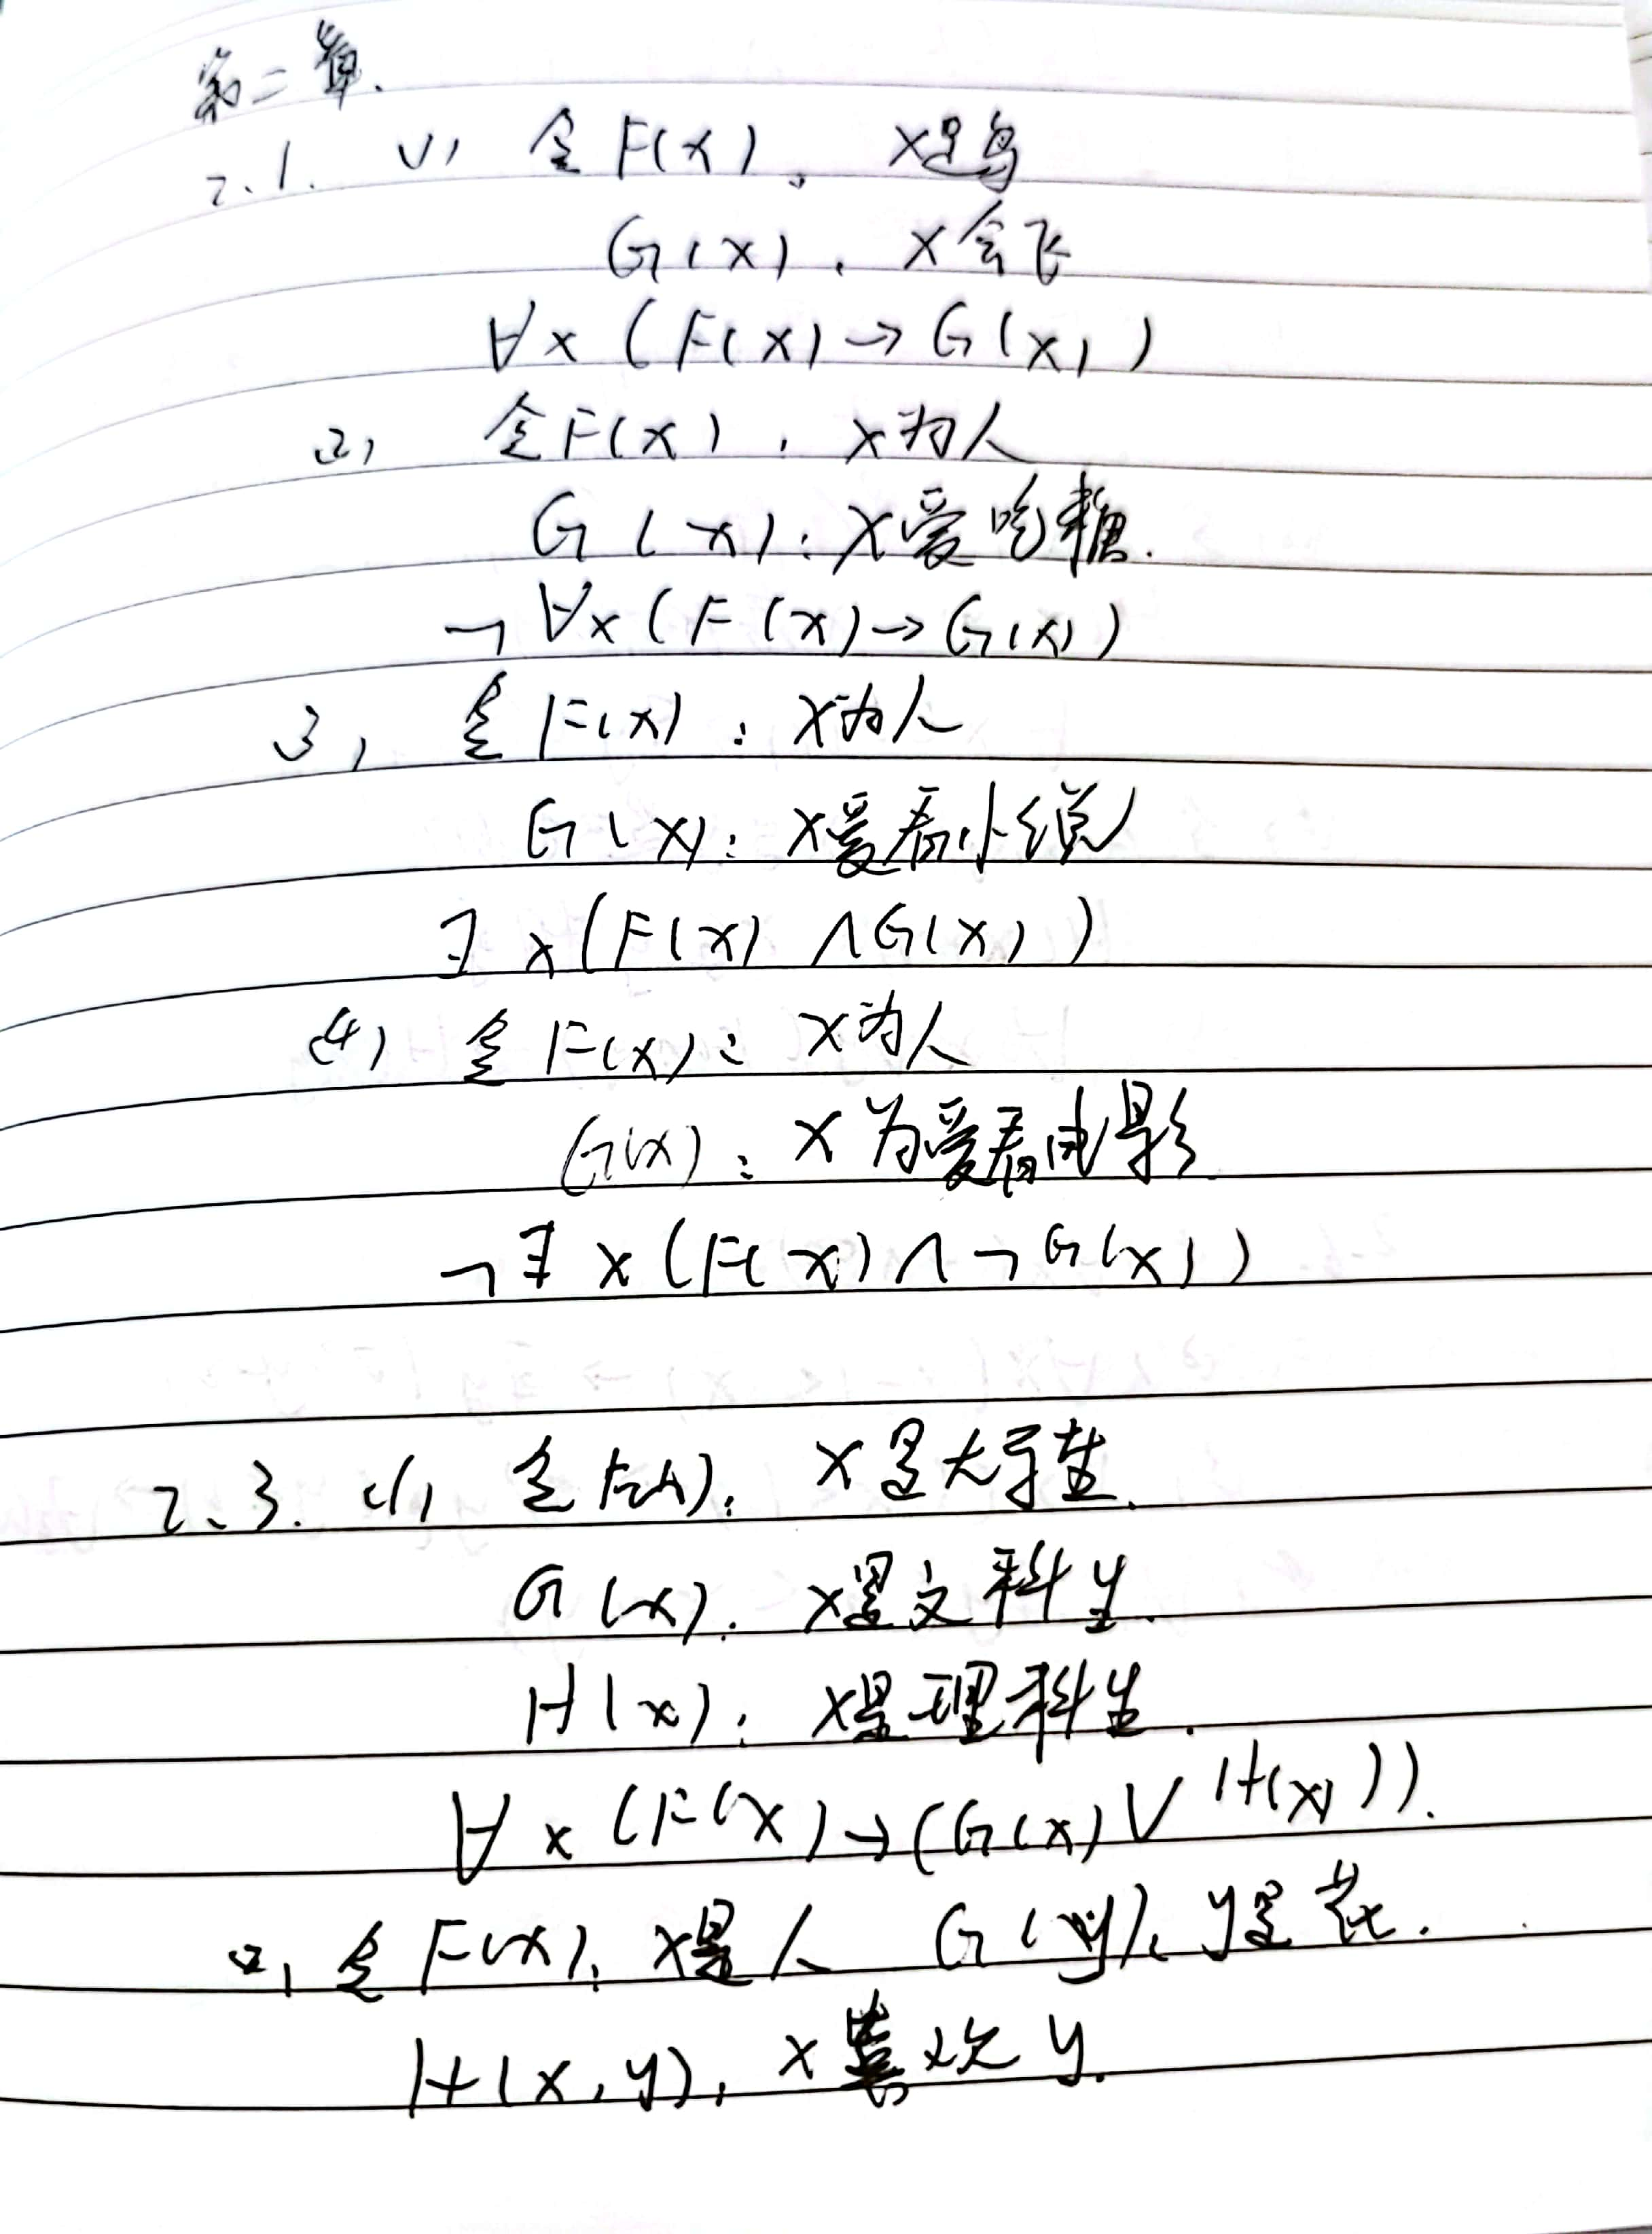 第二章.
2.1. (1) 令F(x): x是鸟
G(x): x会飞
∀x(F(x)→G(x))
(2) 令F(x): x为人
G(x): x爱吃糖.
¬∀x(F(x)→G(x))
3) 令F(x): x为人
G(x): x爱看小说
∃x(F(x)∧G(x))
(4) 令F(x): x为人
G(x): x为爱看电影
¬∃x(F(x)∧¬G(x))
2.3. (1) 令F(x): x是大学生.
G(x): x是文科生.
H(x): x是理科生.
∀x(F(x)→(G(x)∨H(x))).
(2) 令F(x): x是人 G(y): y是花.
H(x,y): x喜欢y.